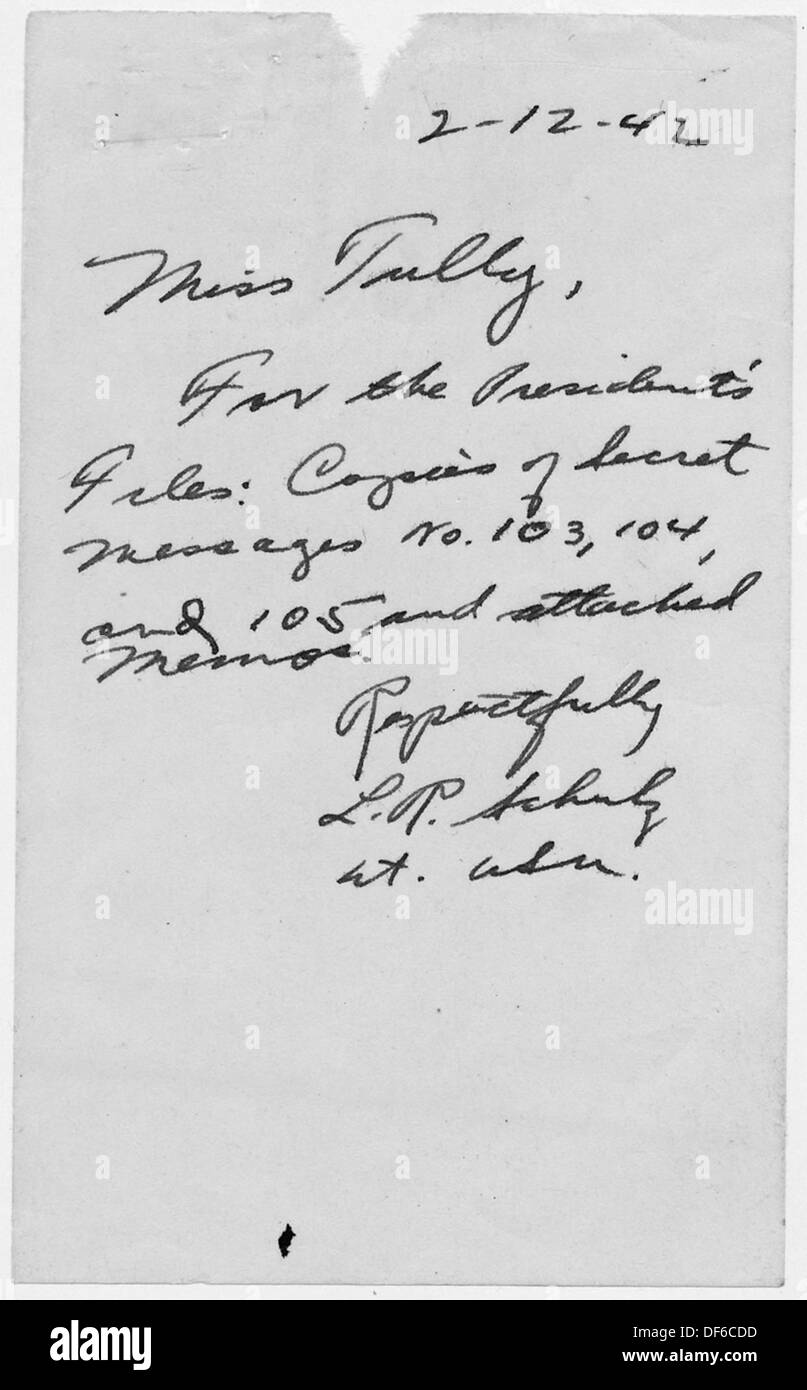 2-12-42
Miss Tully,
For the President's
Files: Copies of Secret
Messages No. 103, 104,
and 105 and attached
Memos.
Respectfully
L.R. Schulz
Lt. USN.
alamy
alamy
Image ID: DF6CDD
www.alamy.com